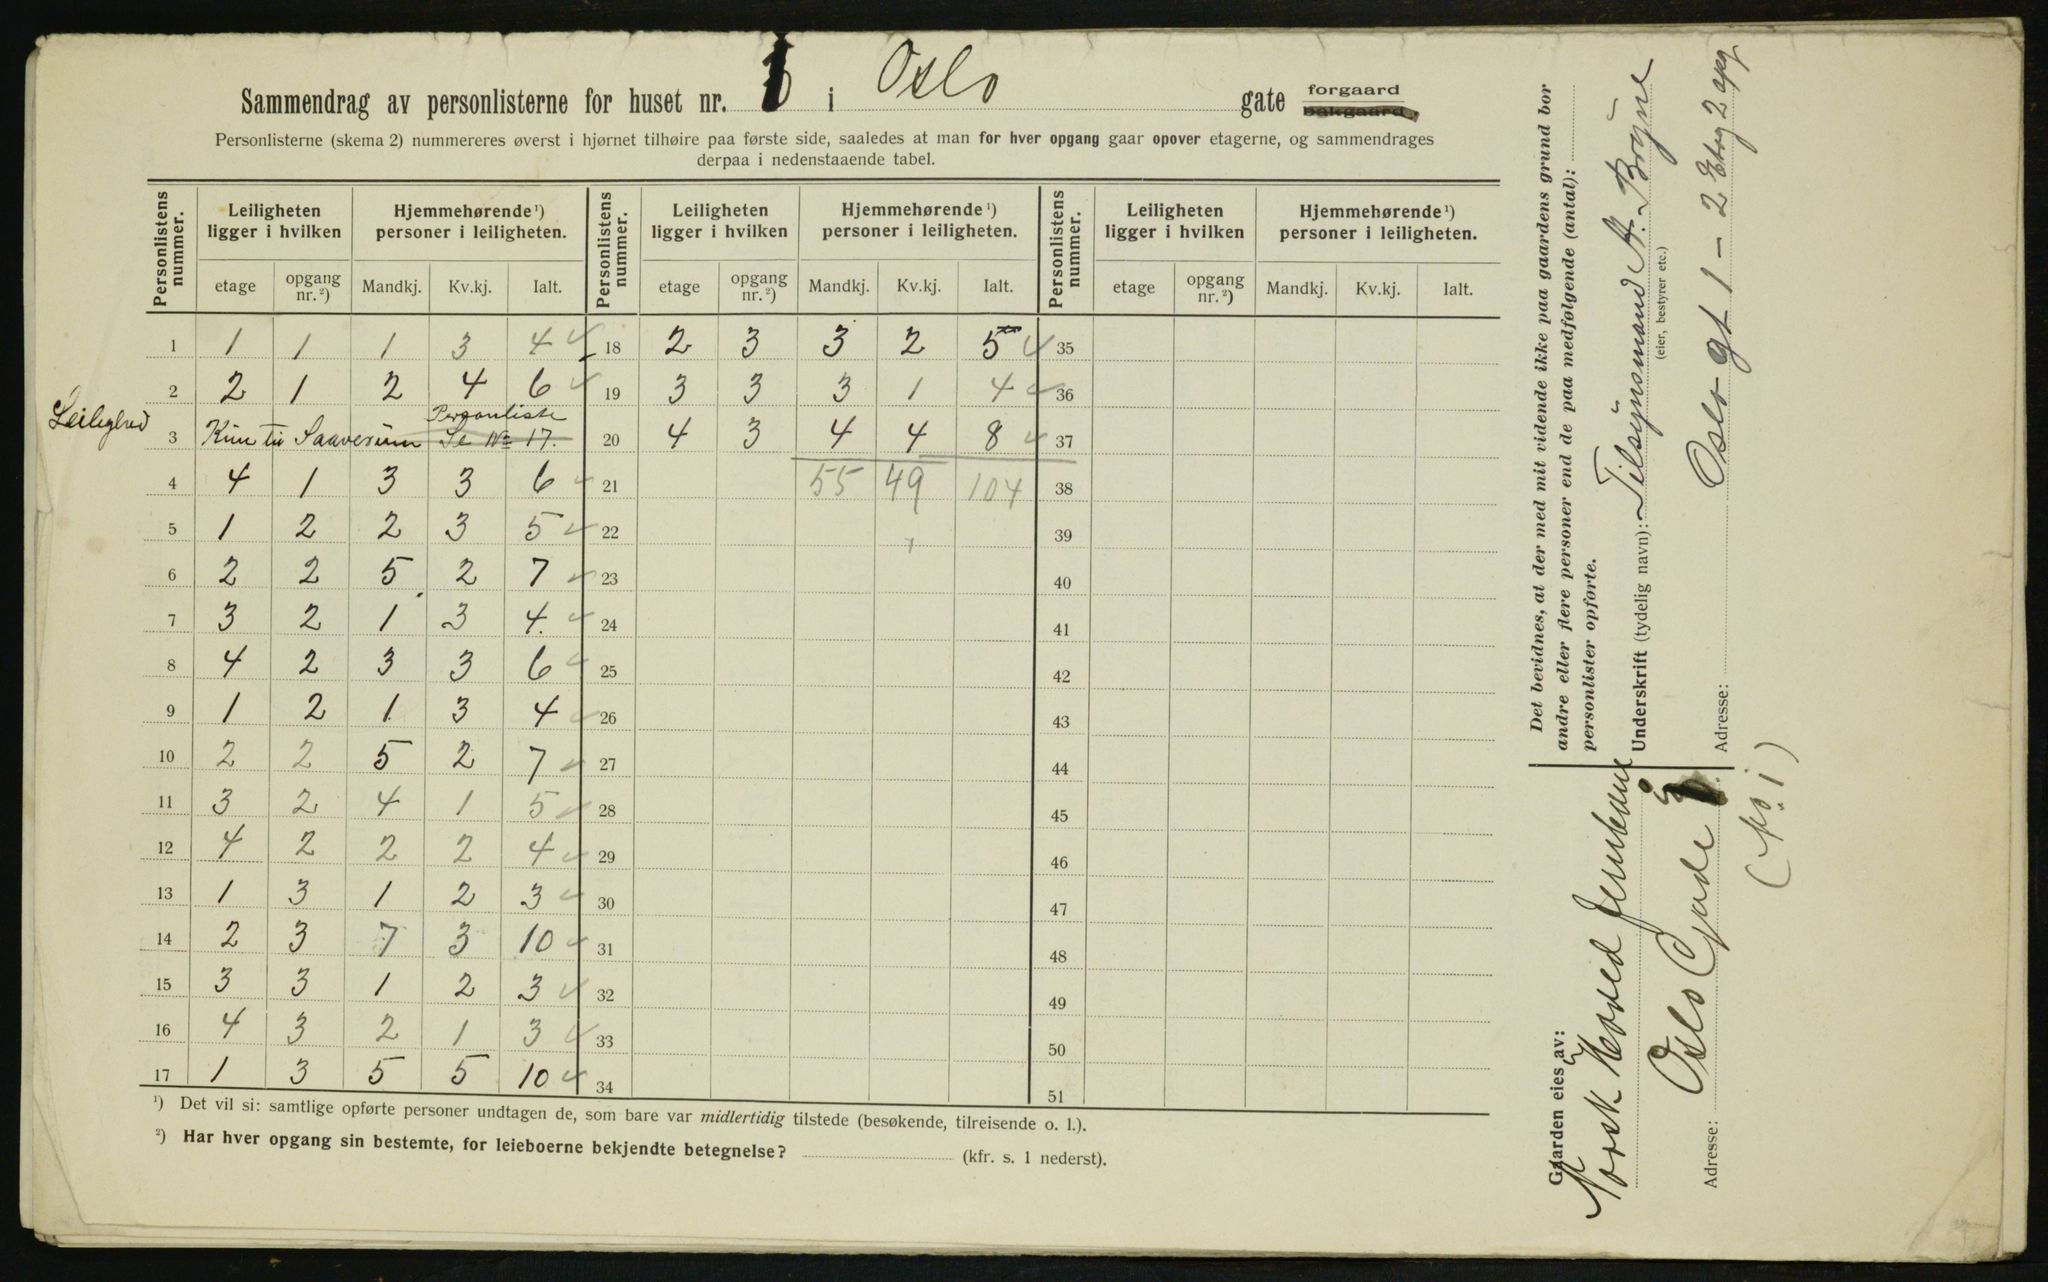 Sammendrag av personlisterne for huset nr. 1 i Oslo gate forgaard bakgaard.
Personlisterne (skema 2) nummereres øverst i hjørnet tilhøire paa første side, saaledes at man for hver opgang gaar opover etagerne, og sammendrages
derpaa i nedenstaaende tabel.
Personlistens nummer. Leiligheten ligger i hvilken Hjemmehørende ¹) personer i leiligheten. Personlistens nummer. Leiligheten ligger i hvilken Hjemmehørende ¹) personer i leiligheten. Personlistens nummer. Leiligheten ligger i hvilken Hjemmehørende ¹) personer i leiligheten.
etage opgang nr. ²) Mandkj. Kv.kj. Ialt. etage opgang nr. ²) Mandkj. Kv.kj. Ialt. etage opgang nr. ²) Mandkj. Kv.kj. Ialt.
1 1 1 1 3 4 ✓ 18 2 3 3 2 5 ✓ 35
2 2 1 2 4 6 ✓ 19 3 3 3 1 4 ✓ 36
Leilighed 3 Kun til Personliste Se No 17. 20 4 3 4 4 8 ✓ 37
4 4 1 3 3 6 ✓ 21 55 49 104 38
5 1 2 2 3 5 ✓ 22 39
6 2 2 5 2 7 ✓ 23 40
7 3 2 1 3 4. ✓ 24 41
8 4 2 3 3 6 ✓ 25 42
9 1 2 1 3 4 ✓ 26 43
10 2 2 5 2 7 ✓ 27 44
11 3 2 4 1 5 ✓ 28 45
12 4 2 2 2 4 ✓ 29 46
13 1 3 1 2 3 ✓ 30 47
14 2 3 7 3 10 ✓ 31 48
15 3 3 1 2 3 ✓ 32 49
16 4 3 2 1 3 ✓ 33 50
17 1 3 5 5 10 ✓ 34 51
¹) Det vil si: samtlige opførte personer undtagen de, som bare var midlertidig tilstede (besøkende, tilreisende o. l.).
²) Har hver opgang sin bestemte, for leieboerne bekjendte betegnelse? (kfr. s. 1 nederst).
Det bevidnes, at der med mit vidende ikke paa gaardens grund bor
andre eller flere personer end de paa medfølgende (antal):
personlister opførte.
Underskrift (tydelig navn): Tilsynsmand A.
(eier, bestyrer etc.)
Adresse: Oslo gt 1 - 2 Etag 2 opg
Gaarden eies av:
Norsk Hoved Jernbane
Adresse: Oslo Gade
(No. 1)